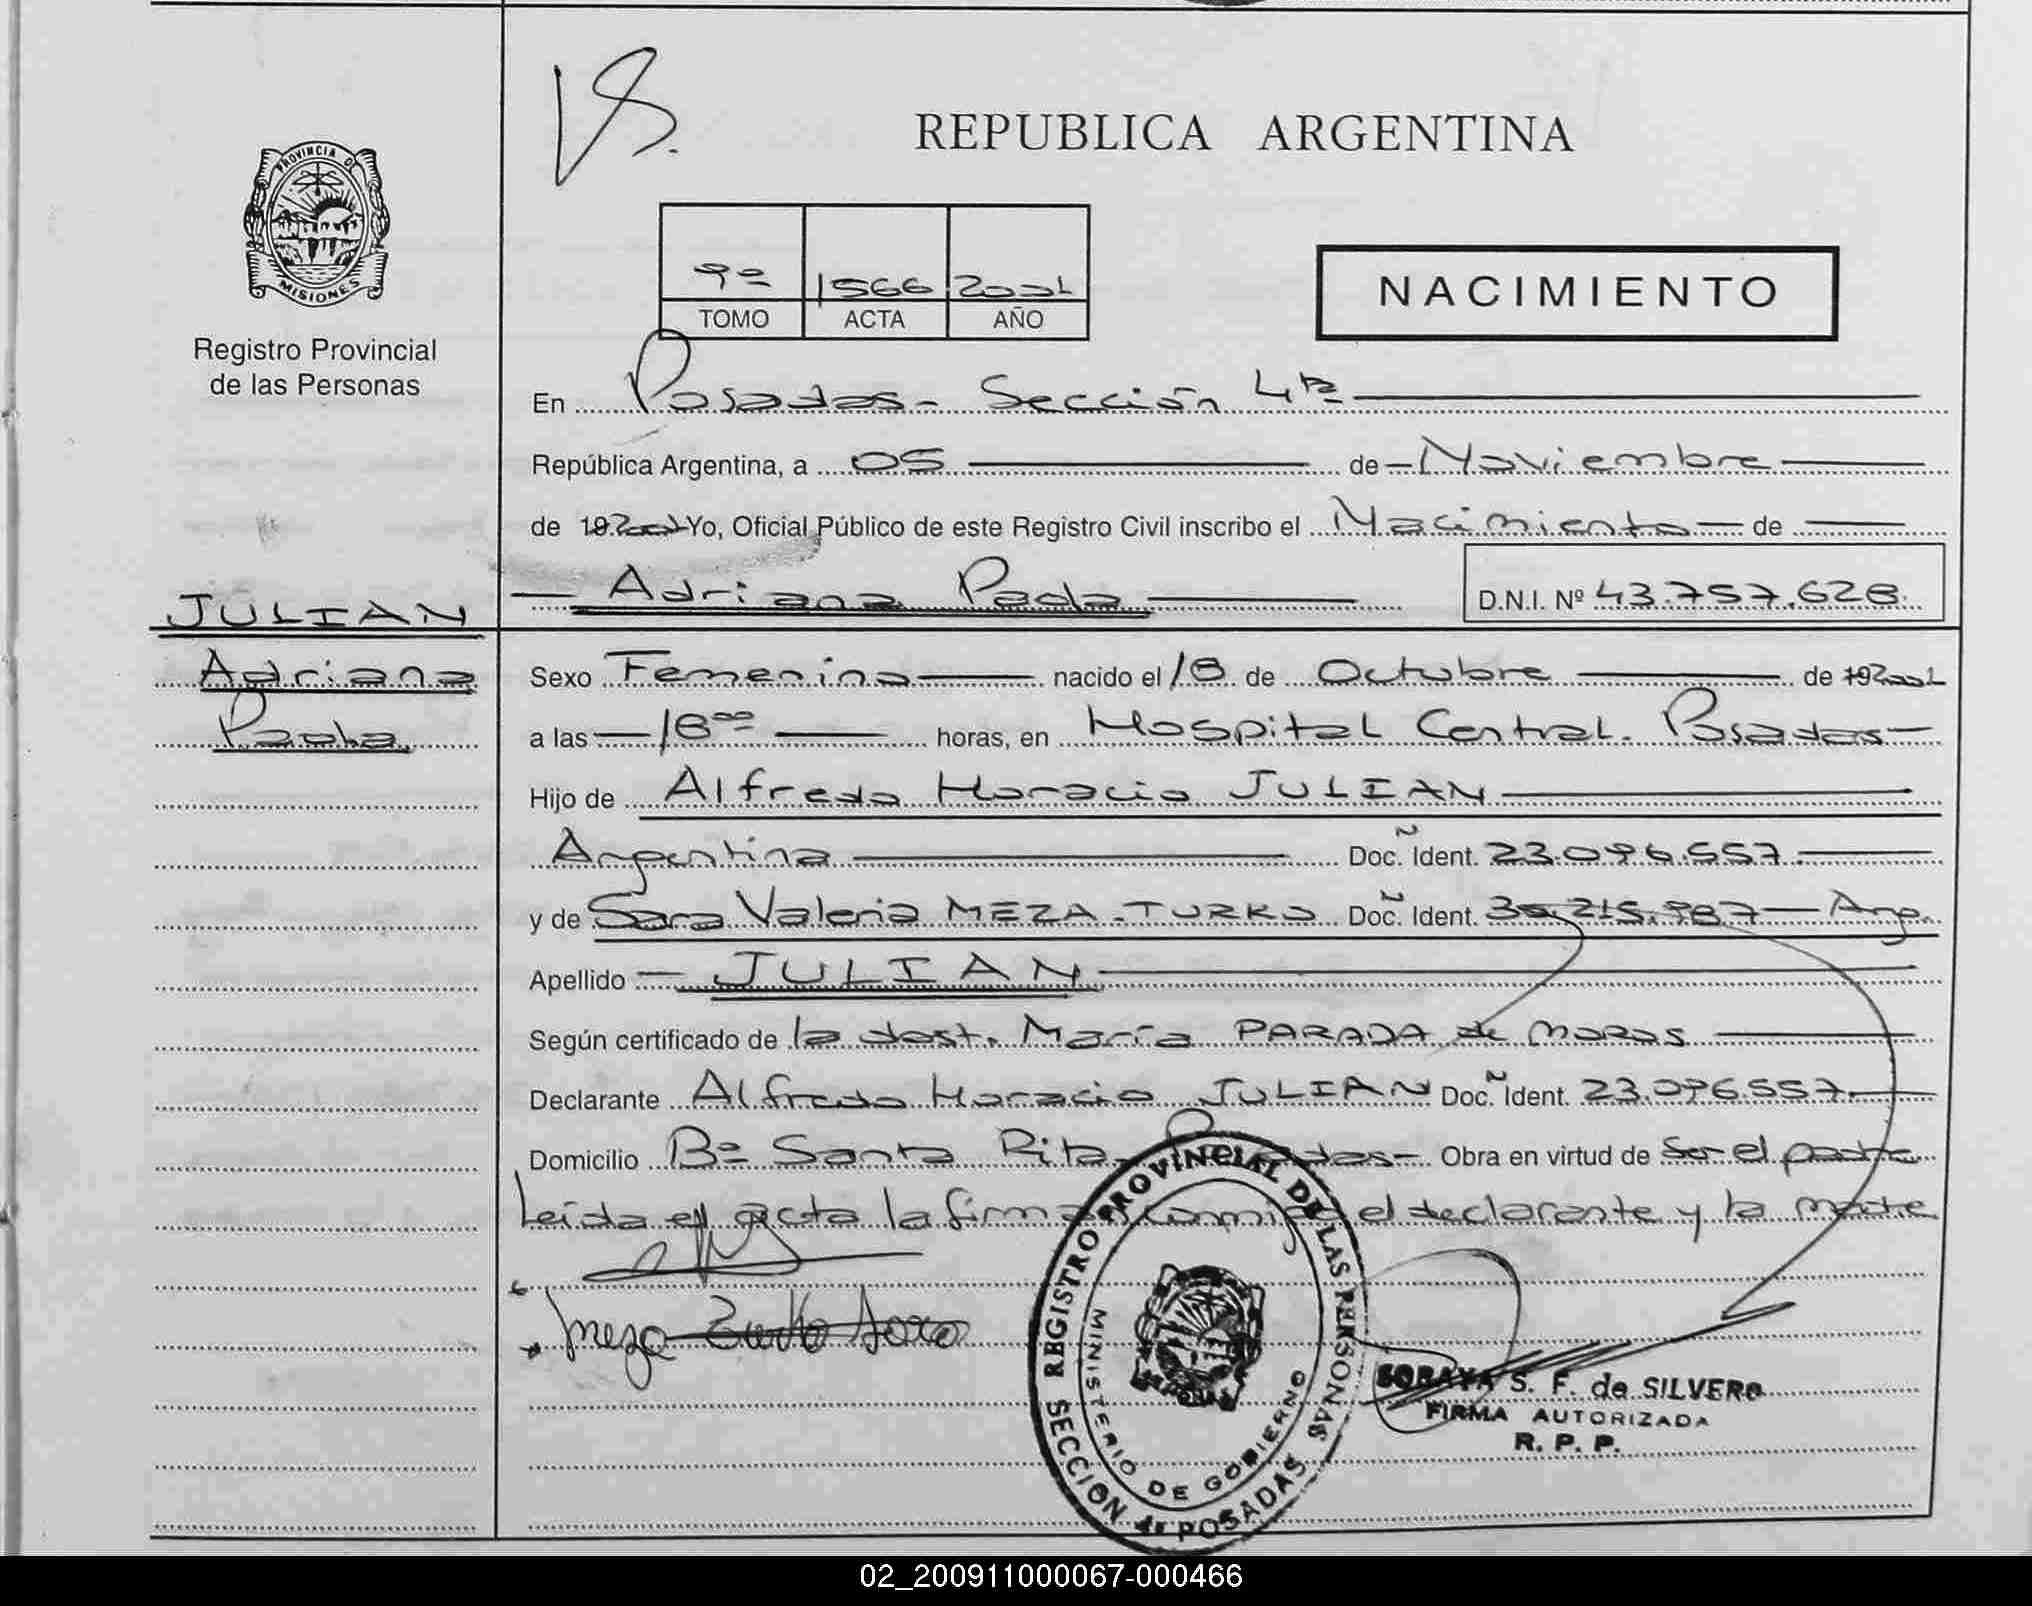 VS.
REPUBLICA ARGENTINA
PROVINCIA DE
MISIONES
Registro Provincial
de las Personas
9º 1566 2001
TOMO ACTA AÑO
NACIMIENTO
En Posadas - Sección 4ta
República Argentina, a 05 de Noviembre
de 19 2001 Yo, Oficial Público de este Registro Civil inscribo el Nacimiento de
Adriana Paola D.N.I. Nº 43.757.628
JULIAN
Adriana
Paola
Sexo Femenino nacido el 18 de Octubre de 19 2001
a las 18 ºº horas, en Hospital Central. Posadas
Hijo de Alfredo Horacio JULIAN
Argentina Doc. Ident. 23.096.557
y de Sara Valeria MEZA TURKO Doc. Ident. 35.215.987 - Arg.
Apellido JULIAN
Según certificado de la dost. María PARADA de MORAS
Declarante Alfredo Horacio JULIAN Doc. Ident. 23.096.557
Domicilio Bº Santa Rita - Posadas - Obra en virtud de ser el padre
Leída el acta la firman conmigo el declarante y la madre
Meza
REGISTRO PROVINCIAL DE LAS PERSONAS
MINISTERIO DE GOBIERNO
SECCION 4ª POSADAS
SORAYA S. F. de SILVERO
FIRMA AUTORIZADA
R. P. P.
02_200911000067-000466